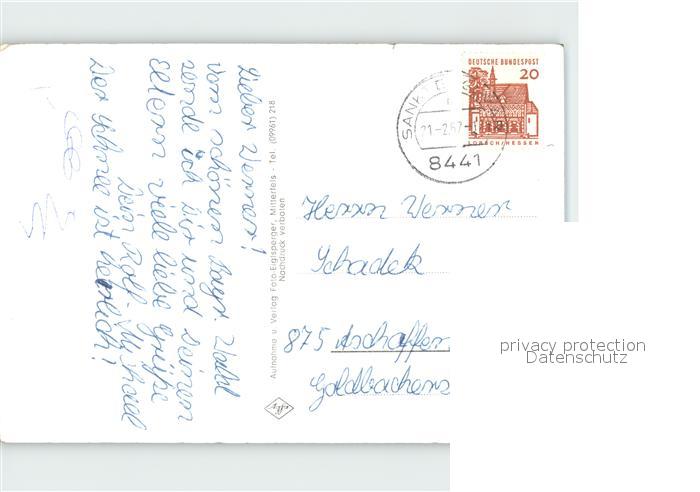 Lieber Werner!
Vom schönen bayr. Wald
sende ich Dir und Deinen
Eltern viele liebe Grüße
Dein Rolf
Der Schnee ist herrlich!
Aufnahme u. Verlag Foto-Eiglsperger, Mitterfels - Tel. (09961) 218
Nachdruck verboten
DEUTSCHE BUNDESPOST
20
LORSCH/HESSEN
SANKT E
21-2.67-1
8441
Herrn Werner
Schadek
875 Aschaffen
Goldbachers
privacy protection
Datenschutz